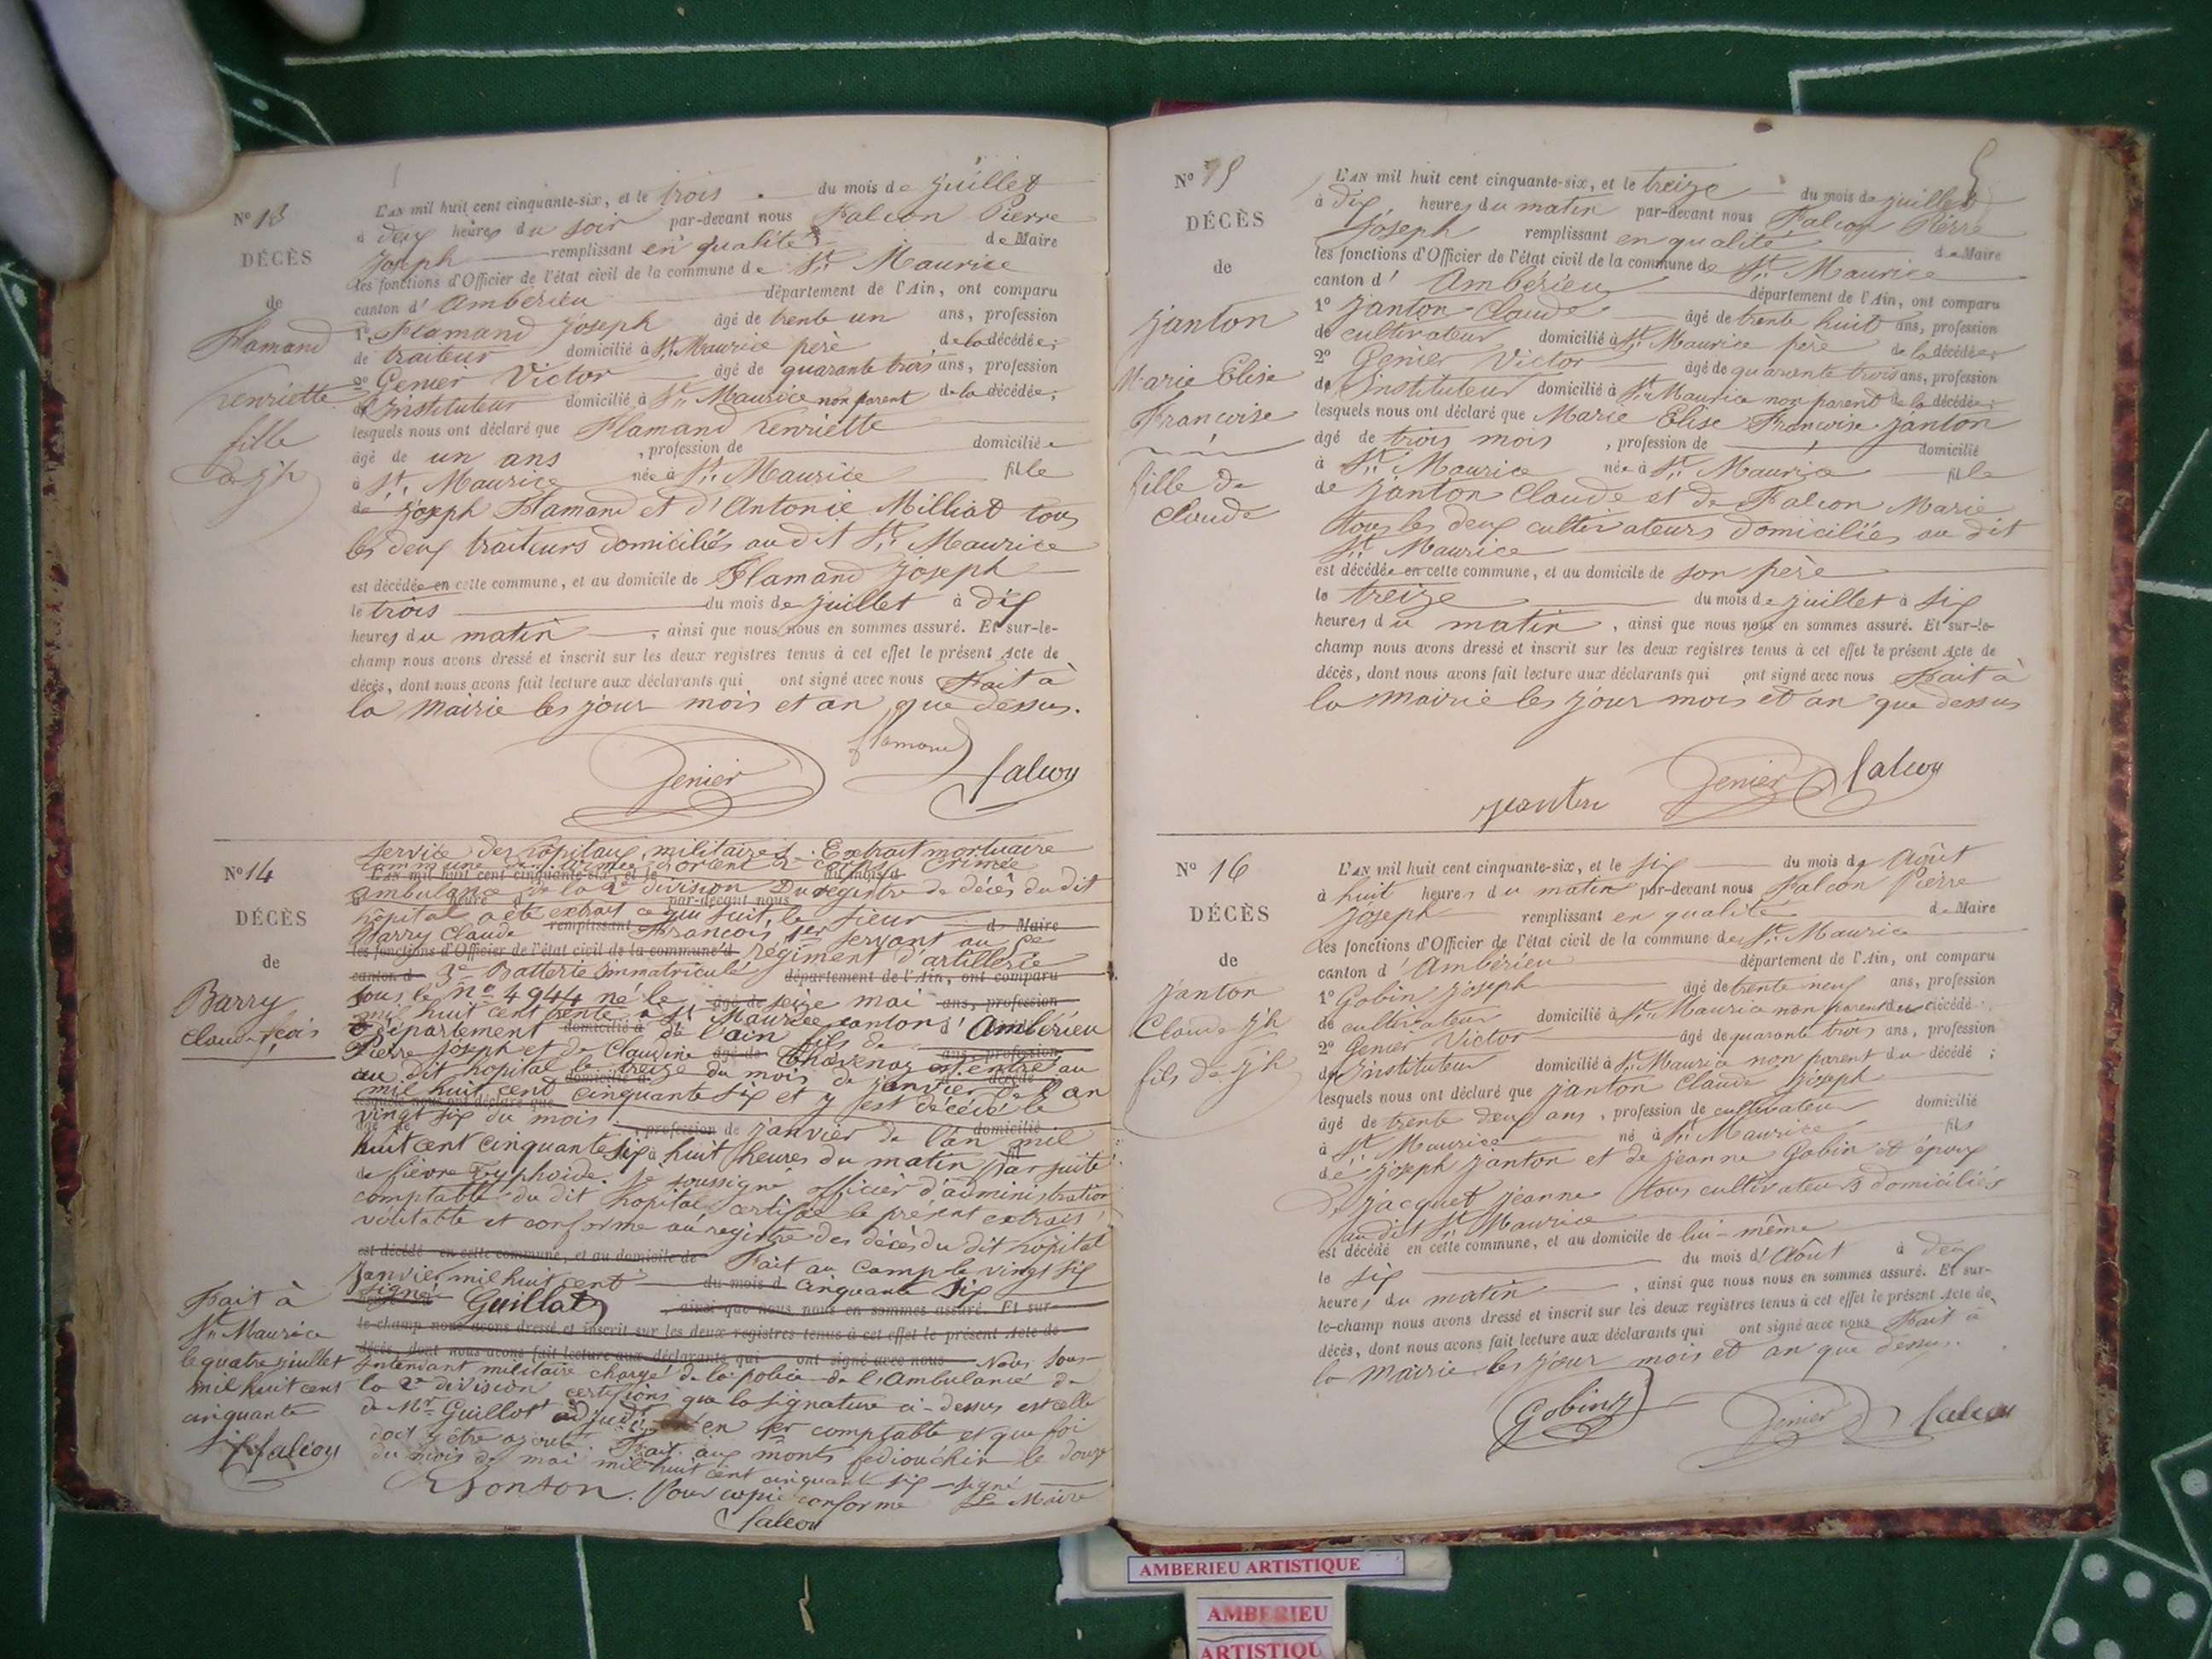 N° 13
DÉCÈS
de
Flamand
henriette
fille
de jh
L'AN mil huit cent cinquante-six, et le trois du mois de juillet
à deux heures du soir par-devant nous Falcon Pierre
Joseph remplissant en qualité de Maire
les fonctions d'Officier de l'état civil de la commune de St Maurice
canton d' Ambérieu département de l'Ain, ont comparu
1° Flamand Joseph âgé de trente un ans, profession
de traiteur domicilié à St Maurice père de la décédée;
2° Genier Victor âgé de quarante trois ans, profession
d'Instituteur domicilié à St Maurice non parent de la décédée;
lesquels nous ont déclaré que Flamand henriette
âgé de un ans , profession de domiciliée
à St Maurice née à St Maurice fille
de Joseph Flamand et d'Antonie Milliat tous
les deux traiteurs domiciliés au dit St Maurice
est décédée en cette commune, et au domicile de Flamand Joseph
le trois du mois de juillet à dix
heures du matin , ainsi que nous nous en sommes assuré. Et sur-le-
champ nous avons dressé et inscrit sur les deux registres tenus à cet effet le présent Acte de
décès, dont nous avons fait lecture aux déclarants qui ont signé avec nous Fait à
la Mairie les jour mois et an que dessus.
flamand
Genier falcon
N° 14
DÉCÈS
de
Barry
Claude fçois
service des hôpitaux militaires. Extrait mortuaire
armée d'orient 2e corps Crimée
L'AN mil huit cent cinquante-six, et le du mois d
ambulance de la 2e division Du registre de décès du dit
heure d par-devant nous
hôpital a été extrait ce qui suit, le sieur
Barry Claude remplissant François 1er servant au de Maire
les fonctions d'Officier de l'état civil de la commune d régiment d'artillerie
canton d 3e Batterie immatriculé département de l'Ain, ont comparu
sous le n° 4944 né le âgé de seize mai ans, profession
mil huit cent trente à St Maurice canton d'Ambérieu
Département domicilié à de l'ain fils de
Pierre joseph et de Claudine âgé de Chavenoz est entré ans, profession
au dit hopital le treize du mois de janvier de l'an
mil huit cent domicilié à cinquante six et y est décédé le
lesquels nous ont déclaré que
vingt six du mois
âgé de , profession de janvier de l'an mil domicilié
huit cent cinquante six à huit heures du matin par suite
de fièvre Typhoïde. Je soussigné officier d'administration
comptable du dit hopital certifie le présent extrait
véritable et conforme au registre des décès du dit hôpital
est décédé en cette commune, et au domicile de Fait au camp le vingt six
janvier mil huit cent du mois d cinquante six
signé Guillot ainsi que nous nous en sommes assuré. Et sur-
le-champ nous avons dressé et inscrit sur les deux registres tenus à cet effet le présent Acte de
décès, dont nous avons fait lecture aux déclarants qui ont signé avec nous Nous Sous-
intendant militaire chargé de la police de l'Ambulance de
la 2e division certifions que la signature ci-dessus est celle
de Mr Guillot en 1er comptable et que foi
doit y être ajoutée. Fait aux monts fediouchin le douze
du mois de mai mil huit cent cinquante six signé
Pour copie conforme Le Maire
falcon
Fait à
St Maurice
le quatre juillet
mil huit cent
cinquante
six falcon
N° 15
DÉCÈS
de
Janton
Marie Elise
Françoise
fille de
Claude
5
L'AN mil huit cent cinquante-six, et le treize du mois de juillet
à dix heures du matin par-devant nous Falcon Pierre
Joseph remplissant en qualité de Maire
les fonctions d'Officier de l'état civil de la commune de St Maurice
canton d' Ambérieu département de l'Ain, ont comparu
1° Janton Claude âgé de trente huit ans, profession
de cultivateur domicilié à St Maurice père de la décédée;
2° Genier Victor âgé de quarante trois ans, profession
d'Instituteur domicilié à St Maurice non parent de la décédée;
lesquels nous ont déclaré que Marie Elise Françoise Janton
âgé de trois mois , profession de domicilié
à St Maurice née à St Maurice fille
de Janton Claude et de Falcon Marie
tous les deux cultivateurs domiciliés au dit
St Maurice
est décédée en cette commune, et au domicile de son père
le treize du mois de juillet à six
heures du matin , ainsi que nous nous en sommes assuré. Et sur-le-
champ nous avons dressé et inscrit sur les deux registres tenus à cet effet le présent Acte de
décès, dont nous avons fait lecture aux déclarants qui ont signé avec nous Fait à
la Mairie les jour mois et an que dessus
janton Genier falcon
N° 16
DÉCÈS
de
Janton
Claude jh
fils de jh
L'AN mil huit cent cinquante-six, et le six du mois de Août
à huit heures du matin par-devant nous Falcon Pierre
Joseph remplissant en qualité de Maire
les fonctions d'Officier de l'état civil de la commune de St Maurice
canton d' Ambérieu département de l'Ain, ont comparu
1° Gobin Joseph âgé de trente neuf ans, profession
de cultivateur domicilié à St Maurice non parent du décédé
2° Genier Victor âgé de quarante trois ans, profession
d'Instituteur domicilié à St Maurice non parent du décédé ;
lesquels nous ont déclaré que Janton Claude Joseph
âgé de trente deux ans , profession de cultivateur domicilié
à St Maurice né à St Maurice fils
de Joseph Janton et de Jeanne Gobin et époux
de Jacquet Jeanne tous cultivateurs domiciliés
au dit St Maurice
est décédé en cette commune, et au domicile de lui-même
le six du mois d'Août à deux
heures du matin , ainsi que nous nous en sommes assuré. Et sur-
le-champ nous avons dressé et inscrit sur les deux registres tenus à cet effet le présent Acte de
décès, dont nous avons fait lecture aux déclarants qui ont signé avec nous Fait à
la Mairie les jour mois et an que dessus.
Gobin Genier falcon
AMBERIEU ARTISTIQUE
AMBERIEU
ARTISTIQU